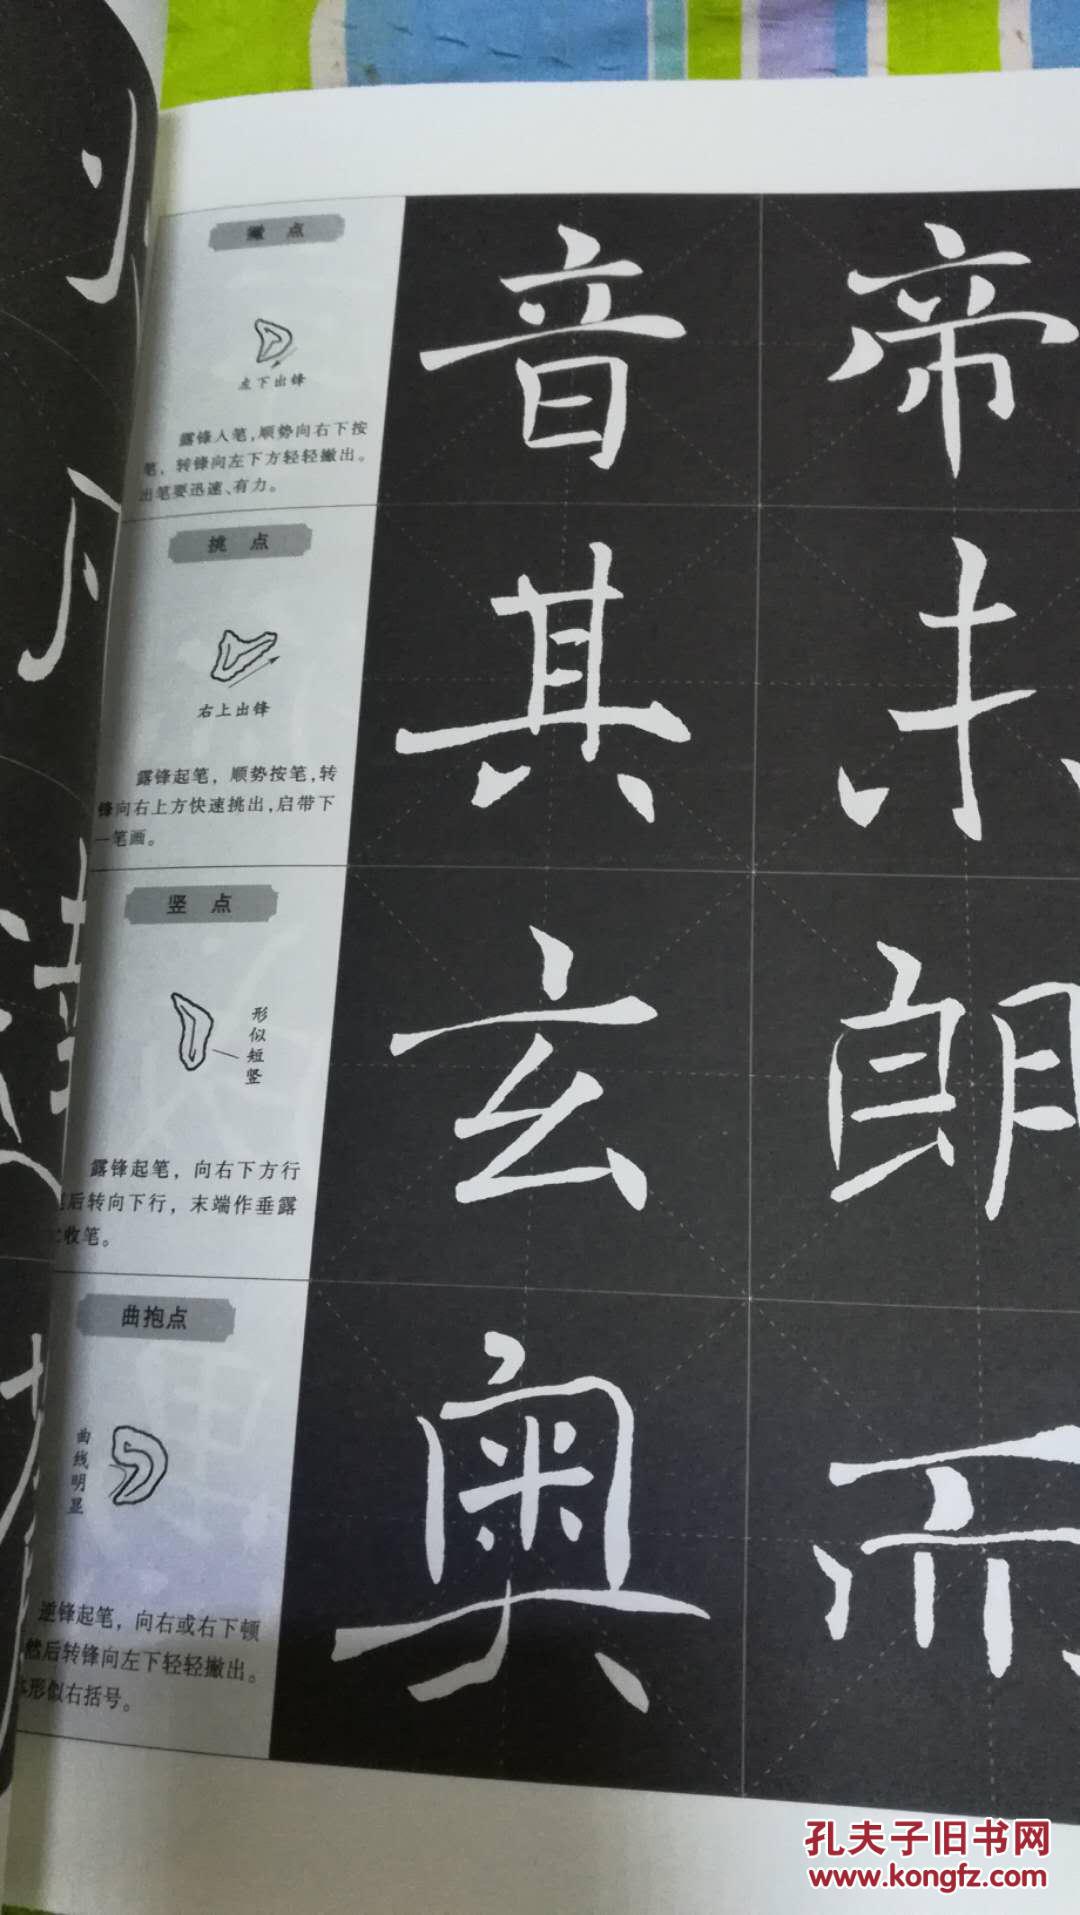 撇 点
音 帝
左下出锋
露锋入笔，顺势向右下按
笔，转锋向左下方轻轻撇出。
出笔要迅速、有力。
挑 点
其
右上出锋
露锋起笔，顺势按笔，转
锋向右上方快速挑出，启带下
一笔画。
竖 点
玄 朗
形似短竖
露锋起笔，向右下方行
后转向下行，末端作垂露
收笔。
曲抱点
奥
曲线明显
逆锋起笔，向右或右下顿
然后转锋向左下轻轻撇出。
形似右括号。
孔夫子旧书网
www.kongfz.com